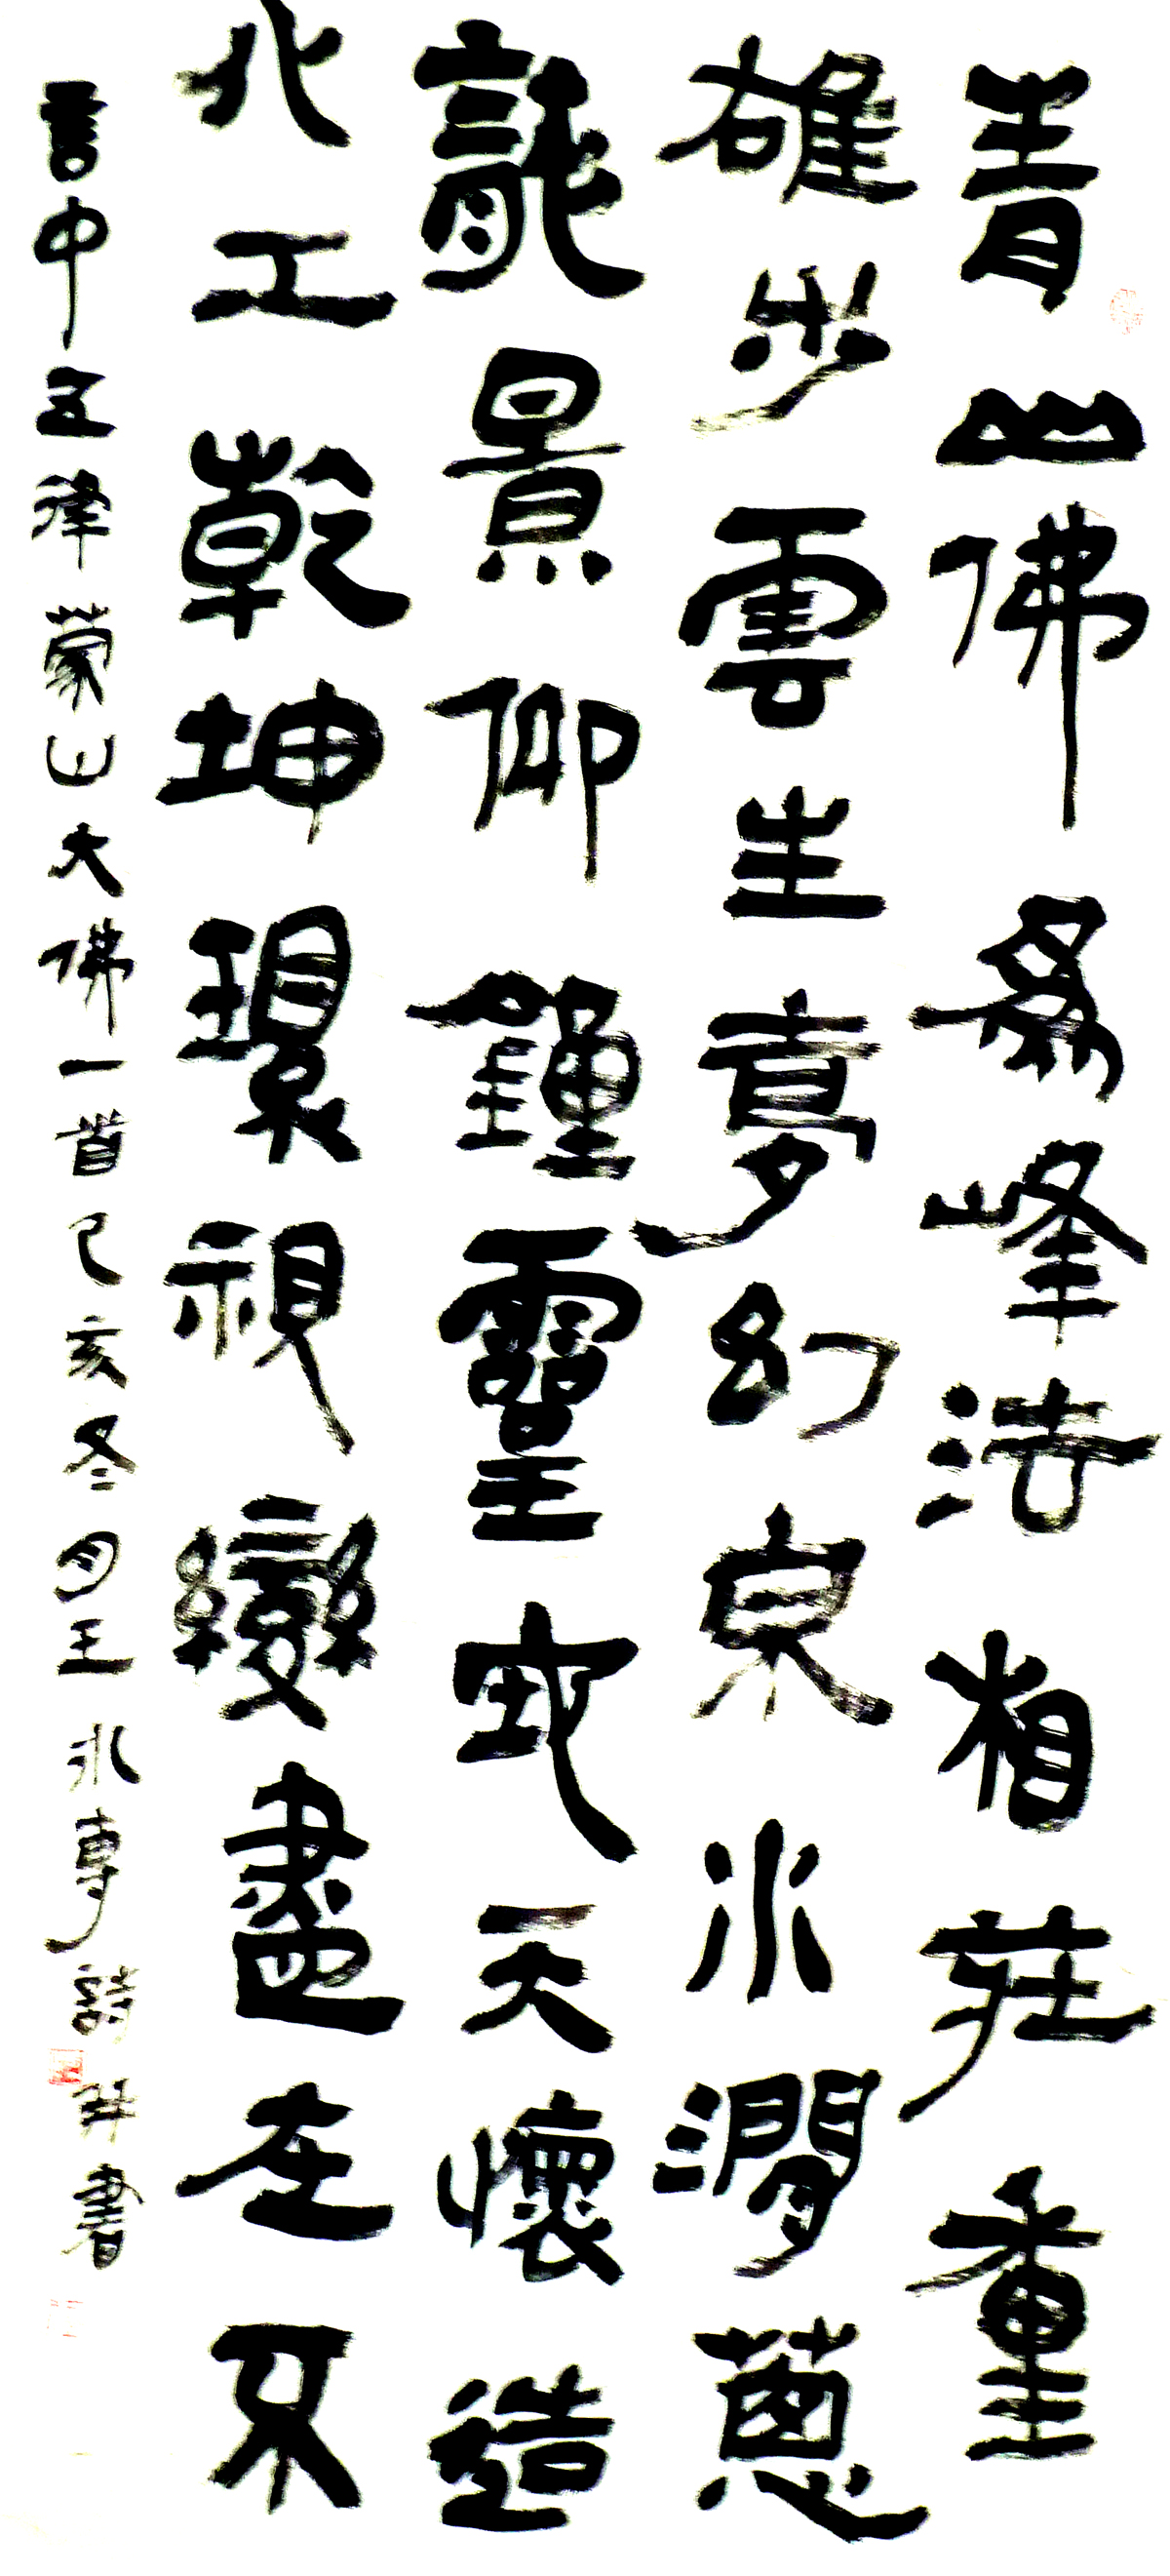 青山佛為峰法相莊重
雄步雲生夢幻泉水澗蔥
龍景仰鐘靈地天懷造
化工乾坤環視變盡在不
言中五律蒙山大佛一首己亥冬月王專詩并書